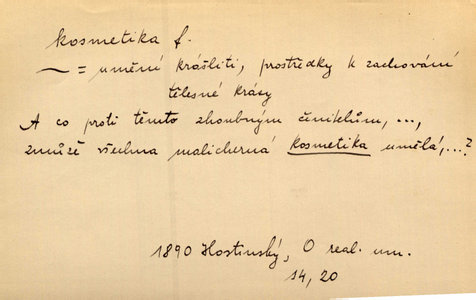 kosmetika f.
~ = umění krášliti, prostředky k zachování
tělesné krásy
A co proti těmto zhoubným činiklům, ...,
zmůže všechna malicherná kosmetika umělá, ...?
1890 Hostinský, O real. um.
14, 20